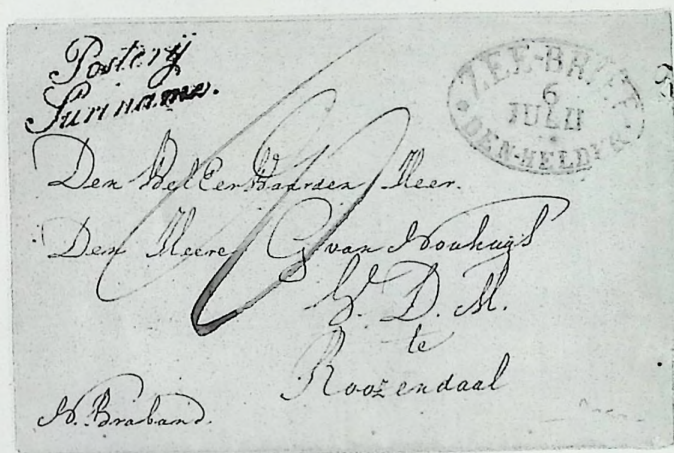 Posterij
Suriname.
ZEE-BRIEF
6
JULIJ
DEN-HELDER
Den WelEerWaarden Heer.
Den Heere G van Nouhuijs
V. D. M.
te
Roozendaal
N. Braband.